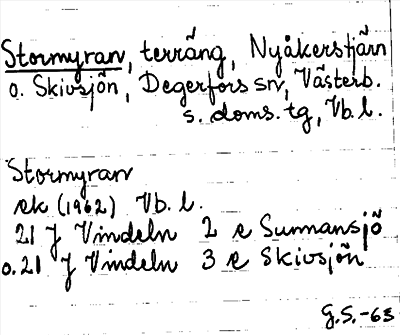 Stormyran, terräng, Nyåkerstjärn
o. Skivsjön, Degerfors sn, Västerb.
s. doms. tg, Vb. l.
Stormyran
ek (1962) Vb. l.
21 J Vindeln 2 e Sunnansjö
o. 21 J Vindeln 3 e Skivsjön
G.S. -63